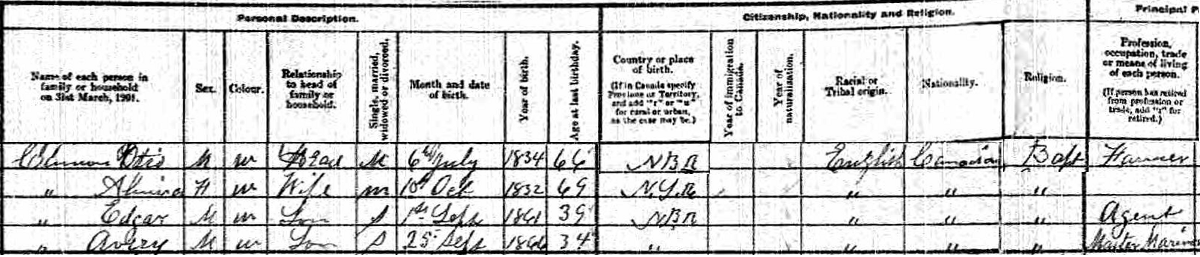 Personal Description. Citizenship, Nationality and Religion. Principal P
Name of each person in family or household on 31st March, 1901. Sex. Colour. Relationship to head of family or household. Single, married, widowed or divorced. Month and date of birth. Year of birth. Age at last birthday. Country or place of birth. (If in Canada specify Province or Territory, and add "r" or "u" for rural or urban, as the case may be.) Year of immigration to Canada. Year of naturalization. Racial or Tribal origin. Nationality. Religion. Profession, occupation, trade or means of living of each person. (If person has retired from profession or trade, add "r" for retired.)
Otis M w Head M 6th July 1834 66 N.B.R English Canadian Bapt Farmer
" F w Wife m 10th Oct 1832 69 " " "
" Edgar M w Son S 1st Sept 1861 39 N.B.R " " " Agent
" Avery M w Son S 25 Sept 1866 34 " " " " Master Mariner